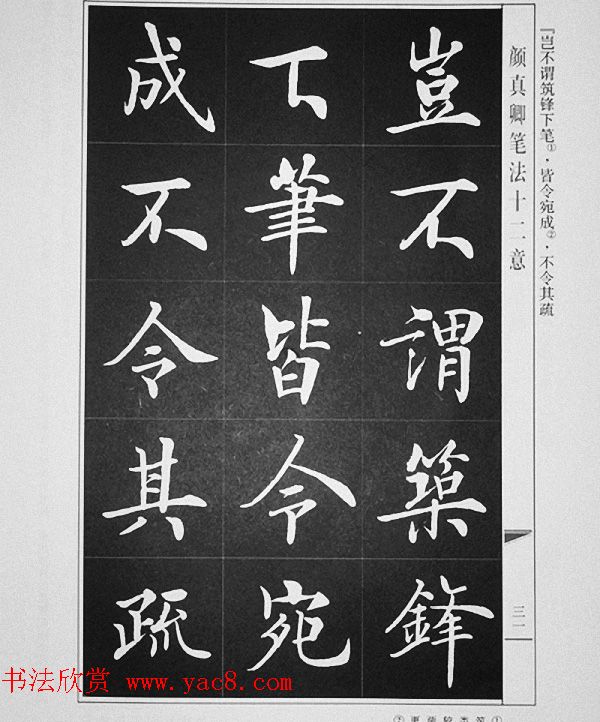 豈不謂築鋒
下筆皆令宛
成不令其疏
『岂不谓筑锋下笔①·皆令宛成②·不令其疏
颜真卿笔法十二意
三一
书法欣赏 www.yac8.com